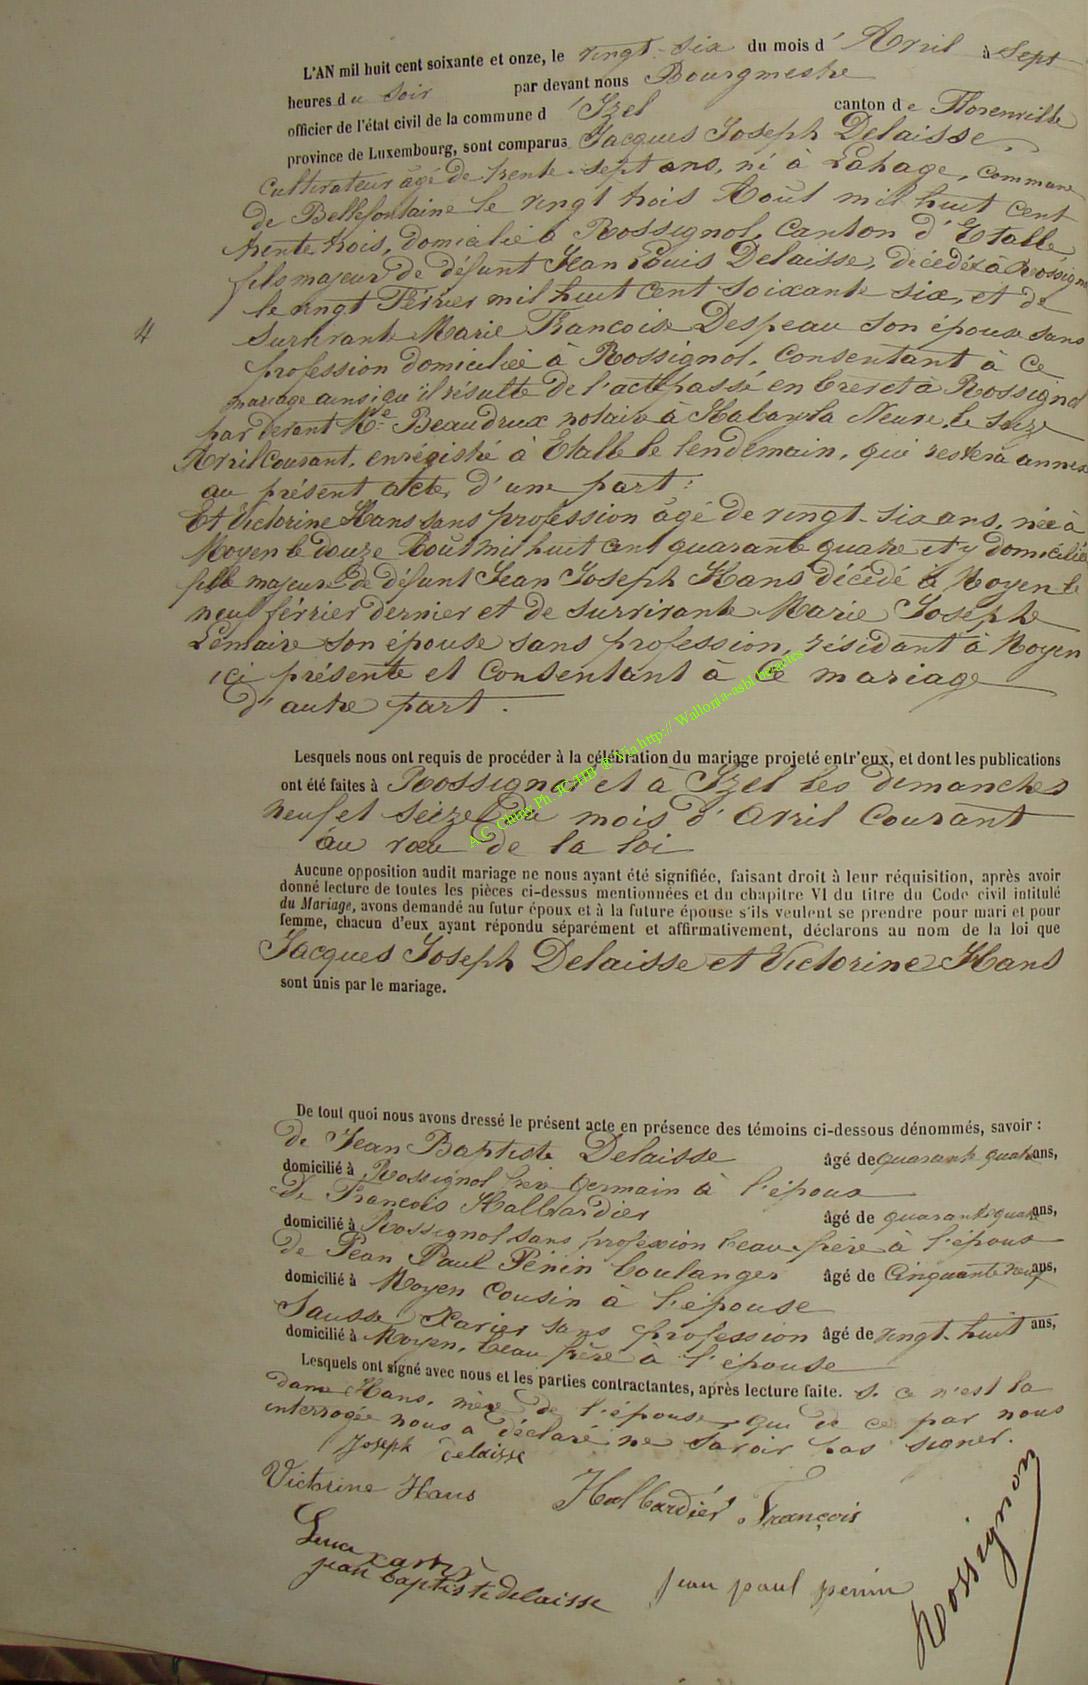 L'AN mil huit cent soixante et onze, le vingt-six du mois d'Avril à Sept
heures du Soir par devant nous Bourgmestre
officier de l'état civil de la commune d'Izel canton de Florenville
province de Luxembourg, sont comparus Jacques Joseph Delaisse,
Cultivateur âgé de trente-sept ans, né à Lahage, commune
de Bellefontaine le vingt trois Août mil huit cent
trente trois, domicilié à Rossignol, canton d'Etalle
fils majeur de défunt Jean Louis Delaisse, décédé à Rossignol
le vingt Février mil huit cent soixante six, et de
4
Survivante Marie Francoise Despeau son épouse sans
profession domiciliée à Rossignol, consentant à ce
mariage ainsi qu'il résulte de l'acte passé en brevet à Rossignol
par devant Me Beaudrux notaire à Habay la Neuve, le Seize
Avril courant, enrégistré à Etalle le lendemain, qui restera annexé
au présent acte, d'une part:
Et Victorine Hans sans profession âgé de vingt-six ans, née à
Moyen le douze Août mil huit cent quarante quatre et y domiciliée
fille majeure de défunt Jean Joseph Hans décédé à Moyen le
neuf février dernier et de survivante Marie Joseph
Lemaire son épouse sans profession, résidant à Moyen
ici présente et consentant à ce mariage
d'autre part.
Lesquels nous ont requis de procéder à la célébration du mariage projeté entr'eux, et dont les publications
ont été faites à Rossignol et à Izel les dimanches
neuf et seize du mois d'Avril Courant
au vœu de la loi
A C Chiny Ph JC HB ® Via http:// Wallonia-asbl
Aucune opposition audit mariage ne nous ayant été signifiée, faisant droit à leur réquisition, après avoir
donné lecture de toutes les pièces ci-dessus mentionnées et du chapitre VI du titre du Code civil intitulé
du Mariage, avons demandé au futur époux et à la future épouse s'ils veulent se prendre pour mari et pour
femme, chacun d'eux ayant répondu séparément et affirmativement, déclarons au nom de la loi que
Jacques Joseph Delaisse et Victorine Hans
sont unis par le mariage.
De tout quoi nous avons dressé le présent acte en présence des témoins ci-dessous dénommés, savoir :
de Jean Baptiste Delaisse âgé de quarante quatre ans,
domicilié à Rossignol frère Germain à l'époux
De François Halbardier âgé de quarante quatre ans,
domicilié à Rossignol sans profession beau-frère à l'époux
de Jean Paul Pénin boulanger âgé de Cinquante neuf ans,
domicilié à Moyen cousin à l'épouse
Sausse, Xavier sans profession âgé de vingt-huit ans,
domicilié à Moyen, beau frère à l'épouse
Lesquels ont signé avec nous et les parties contractantes, après lecture faite. Si ce n'est la
dame Hans, mère de l'épouse, qui de ce par nous
interrogée nous a déclaré ne savoir pas signer.
Joseph Delaisse
Victorine Hans Halbardier François
xavier
jean baptiste delaisse jean paul penin
Rossignon